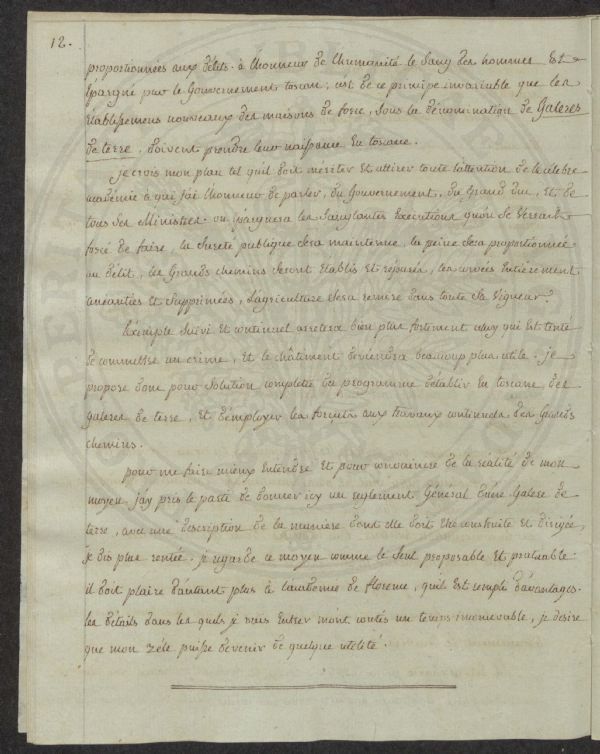 12.
proportionnées aux délits. à l'honneur de l'humanité le sang des hommes Est
Epargné par le Gouvernement toscan, c'est de ce principe invariable que les
Etablissemens nouveaux des maisons de force, sous la dénomination de Galeres
de terre, doivent prendre leur naissance En toscane.
je crois mon plan tel qu'il doit mériter Et attirer toute l'attention de la célebre
académie à qui j'ai l'honneur de parler, du Gouvernement, du Grand duc, Et de
tous ses Ministres. on Epargnera les sanglantes Executions qu'on se verrait
forcé de faire, la sureté publique sera maintenue, la peine sera proportionnée
au délit, les Grands chemins seront Etablis Et réparés, les corvées Entièrement
anéanties Et supprimées, L'agriculture sera remise dans toute sa vigueur.
L'exemple suivi Et continuel arretera bien plus fortement celuy qui Est tenté
de commettre un crime, Et le châtiment deviendra beaucoup plus utile. je
propose donc pour solution complette du programme d'établir En toscane, des
galeres de terre, Et d'employer les forçats aux travaux continuels des Grands
chemins.
pour me faire mieux Entendre Et pour convaincre de la réalité de mon
moyen j'ay pris le parti de donner icy un reglement Général d'une Galere de
terre, avec une description de la maniere dont elle doit Etre construite Et dirigée,
je dis plus rentée. je regarde ce moyen comme le seul proposable Et praticable.
il doit plaire d'autant plus à l'académie de florence, qu'il Est remple d'avantages.
les détails dans les quels je vais Entrer m'ont coutés un temps inconcevable, je desire
que mon zéle puisse devenir de quelque utelité.